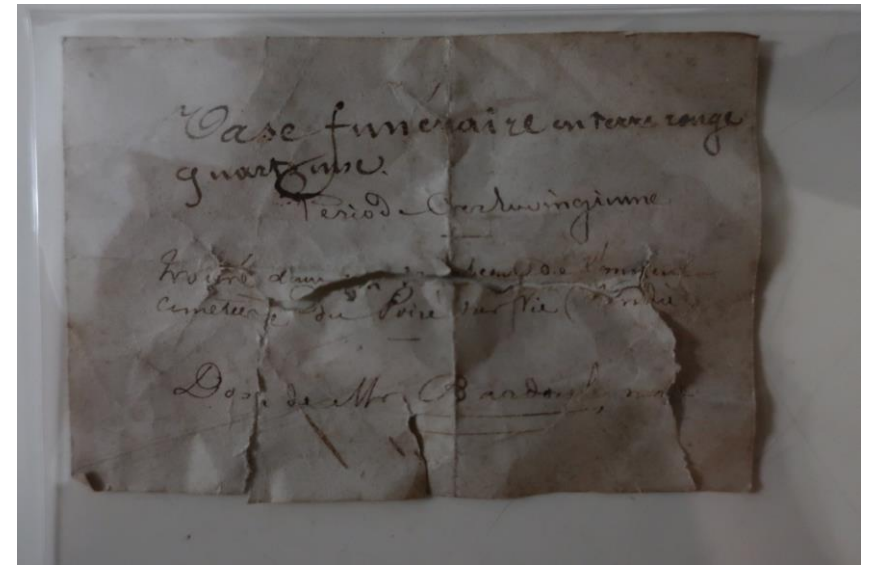 Vase funéraire en terre rouge
quartzeuse.
Période Carlovingienne
trouvé dans de l'ancien
cimetière du Poiré sur Vie (Vendée
Don de Mr